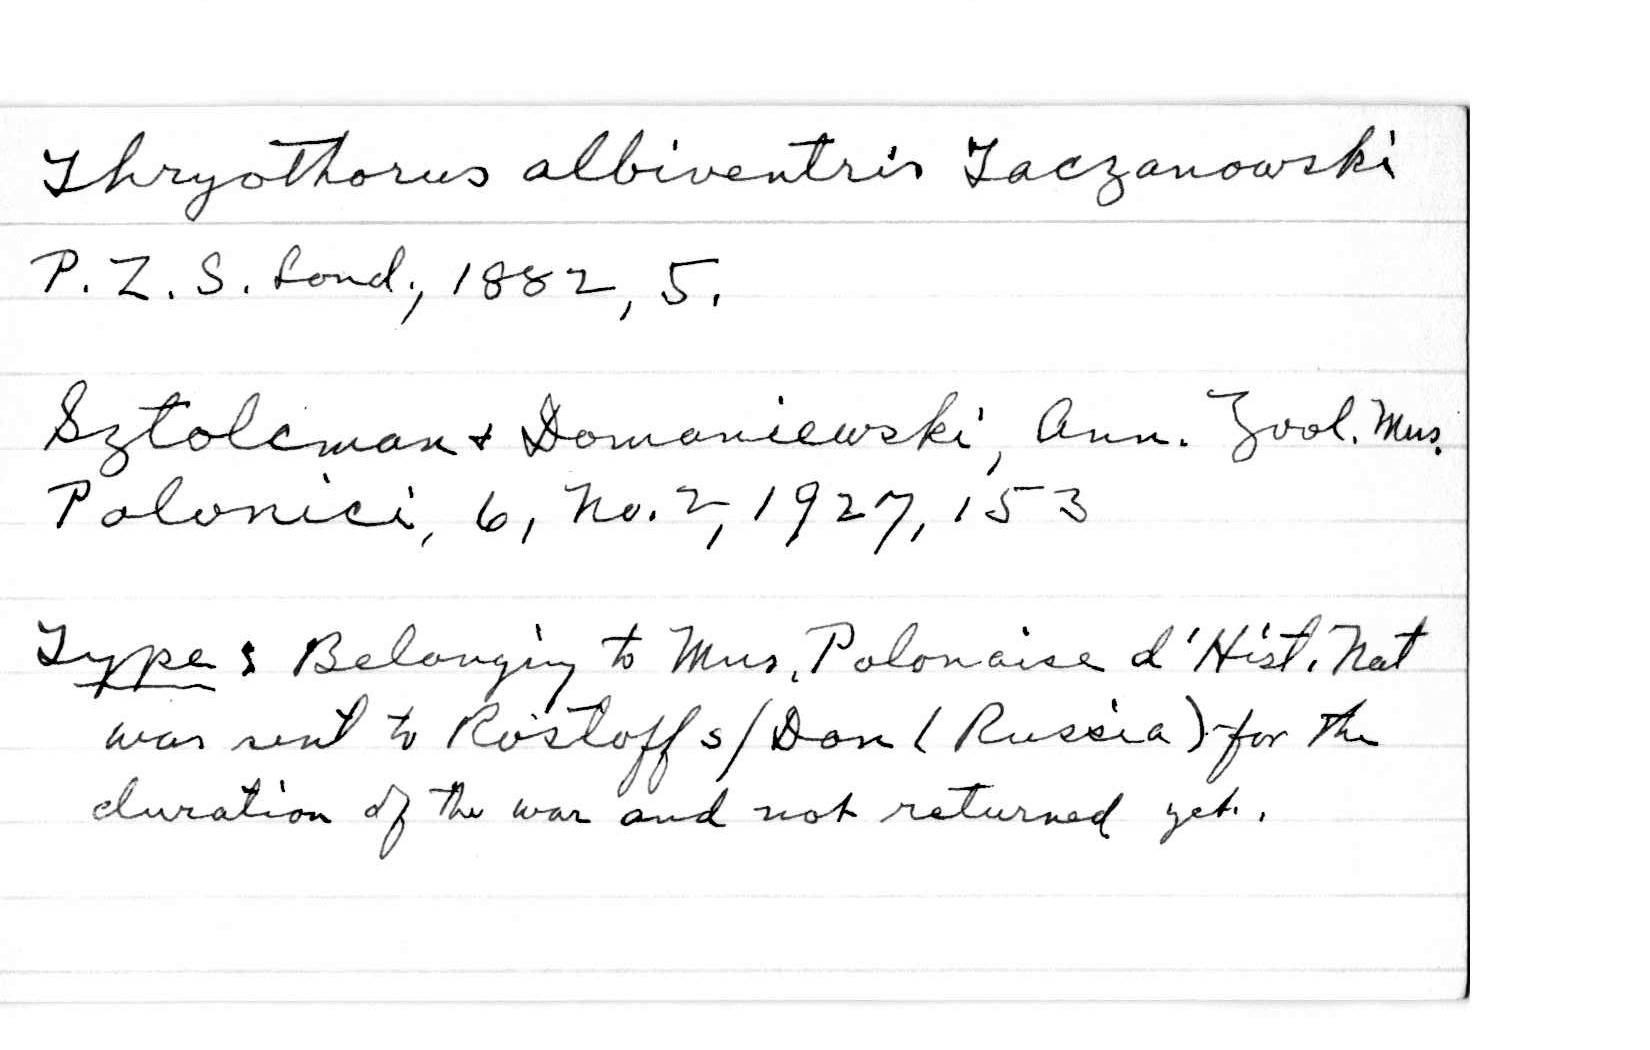 Thryothorus albiventris Taczanowski
P. Z. S. Lond., 1882, 5.
Sztolcman & Domaniewski, Ann. Zool. Mus.
Polonici, 6, No. 2, 1927, 153
Type: Belonging to Mus. Polonaise d'Hist. Nat
was sent to Rostoff s/Don (Russia) for the
duration of the war and not returned yet.